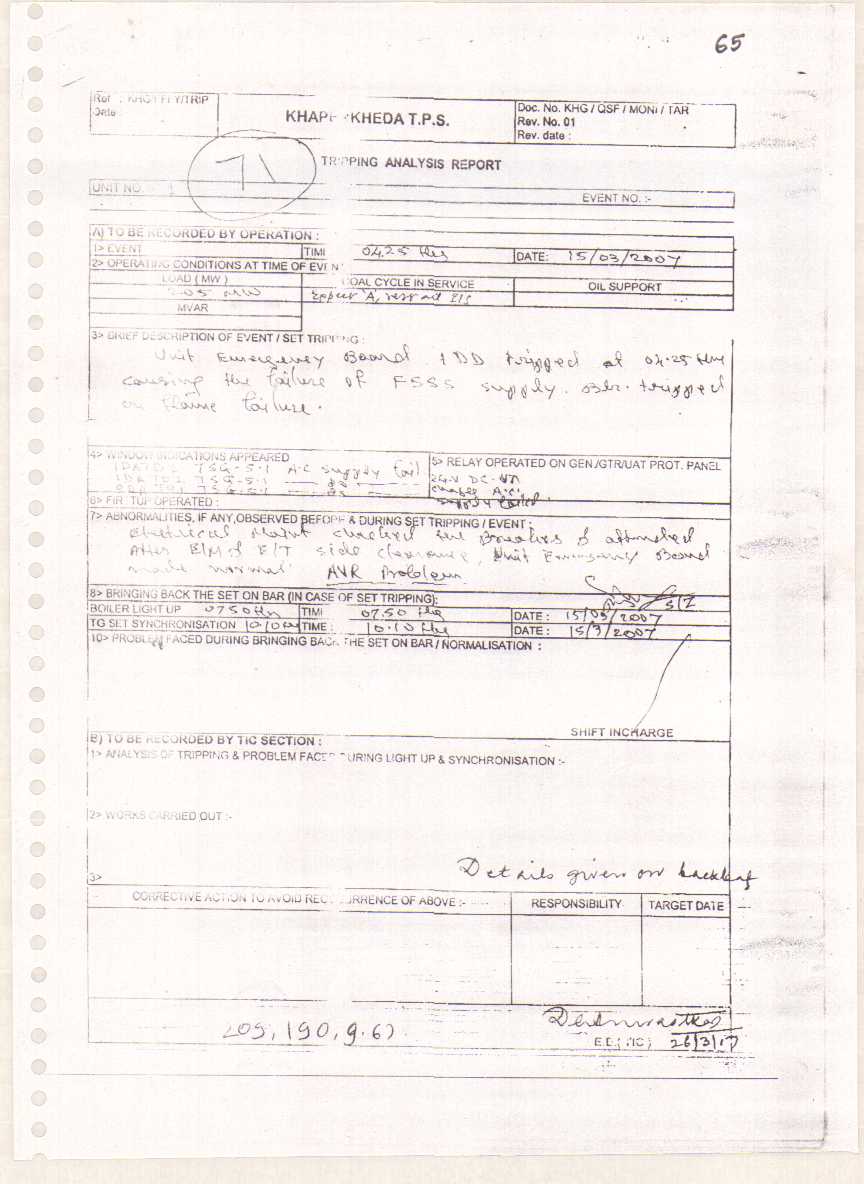 65
Ref : KHG/FLY/TRIP
Date
KHAPERKHEDA T.P.S.
Doc. No. KHG / QSF / MONI / TAR
Rev. No. 01
Rev. date :
71
TRIPPING ANALYSIS REPORT
UNIT NO.
EVENT NO. :-
A) TO BE RECORDED BY OPERATION :
1> EVENT
TIME
04.25 Hrs
DATE: 15/03/2007
2> OPERATING CONDITIONS AT TIME OF EVENT
LOAD ( MW )
COAL CYCLE IN SERVICE
OIL SUPPORT
205 MW
Except 'A', rest all I/S
MVAR
3> BRIEF DESCRIPTION OF EVENT / SET TRIPPING :
Unit Emergency Board 1DD tripped at 04.25 Hrs
causing the failure of FSSS supply. Blr. tripped
on flame failure.
4> WINDOW INDICATIONS APPEARED
5> RELAY OPERATED ON GEN./GTR/UAT PROT. PANEL
TSG-5-1 A.C supply fail
24V DC
TSG-5-1
TSG-5-1
A.C.
supply failed.
6> FIRST UP OPERATED :
7> ABNORMALITIES, IF ANY,OBSERVED BEFORE & DURING SET TRIPPING / EVENT :
Electrical Maint checked the Breakers & attended
After E/M & E/T side clearance, Unit Emergency Board
made normal.
AVR Problem
8> BRINGING BACK THE SET ON BAR (IN CASE OF SET TRIPPING);
BOILER LIGHT UP 0750 Hrs
TIME
07.50 Hrs
DATE : 15/03/2007
TG SET SYNCHRONISATION 10.10 Hrs
TIME :
10.10 Hrs
DATE : 15/3/2007
10> PROBLEM FACED DURING BRINGING BACK THE SET ON BAR / NORMALISATION :
SHIFT INCHARGE
B) TO BE RECORDED BY TIC SECTION :
1> ANALYSIS OF TRIPPING & PROBLEM FACED DURING LIGHT UP & SYNCHRONISATION :-
2> WORKS CARRIED OUT :-
Details given on backleaf
3>
CORRECTIVE ACTION TO AVOID RECURRENCE OF ABOVE :-
RESPONSIBILITY
TARGET DATE
205, 190, 9.67
E.E.( TIC ) 26/3/07